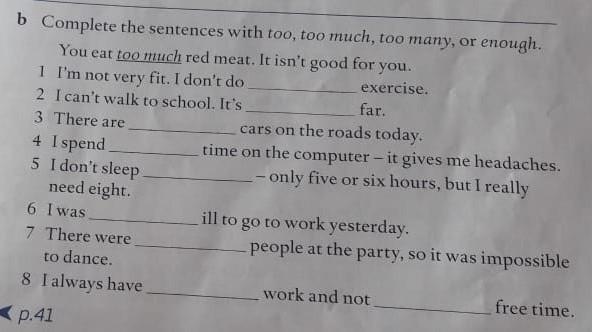 b Complete the sentences with too, too much, too many, or enough.
You eat too much red meat. It isn't good for you.
1 I'm not very fit. I don't do __________ exercise.
2 I can't walk to school. It's __________ far.
3 There are __________ cars on the roads today.
4 I spend __________ time on the computer – it gives me headaches.
5 I don't sleep __________ – only five or six hours, but I really
need eight.
6 I was __________ ill to go to work yesterday.
7 There were __________ people at the party, so it was impossible
to dance.
8 I always have __________ work and not __________ free time.
p.41